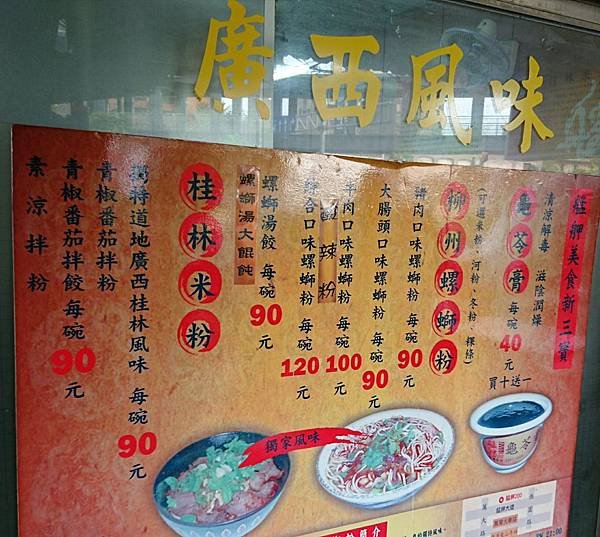 廣西風味
壯鄉美食新三寶
清涼解毒 滋陰潤燥
龜苓膏 每碗40元
買十送一
柳州螺螄粉
(可選米粉、河粉、冬粉、粿條)
豬肉口味螺螄粉 每碗90元
大腸頭口味螺螄粉 每碗90元
牛肉口味螺螄粉 每碗100元
酸辣粉
綜合口味螺螄粉 每碗120元
螺螄湯餃 每碗90元
螺螄湯大餛飩
桂林米粉
獨特道地廣西桂林風味 每碗90元
青椒番茄拌粉
青椒番茄拌餃 每碗90元
素涼拌粉
獨家風味
龜苓